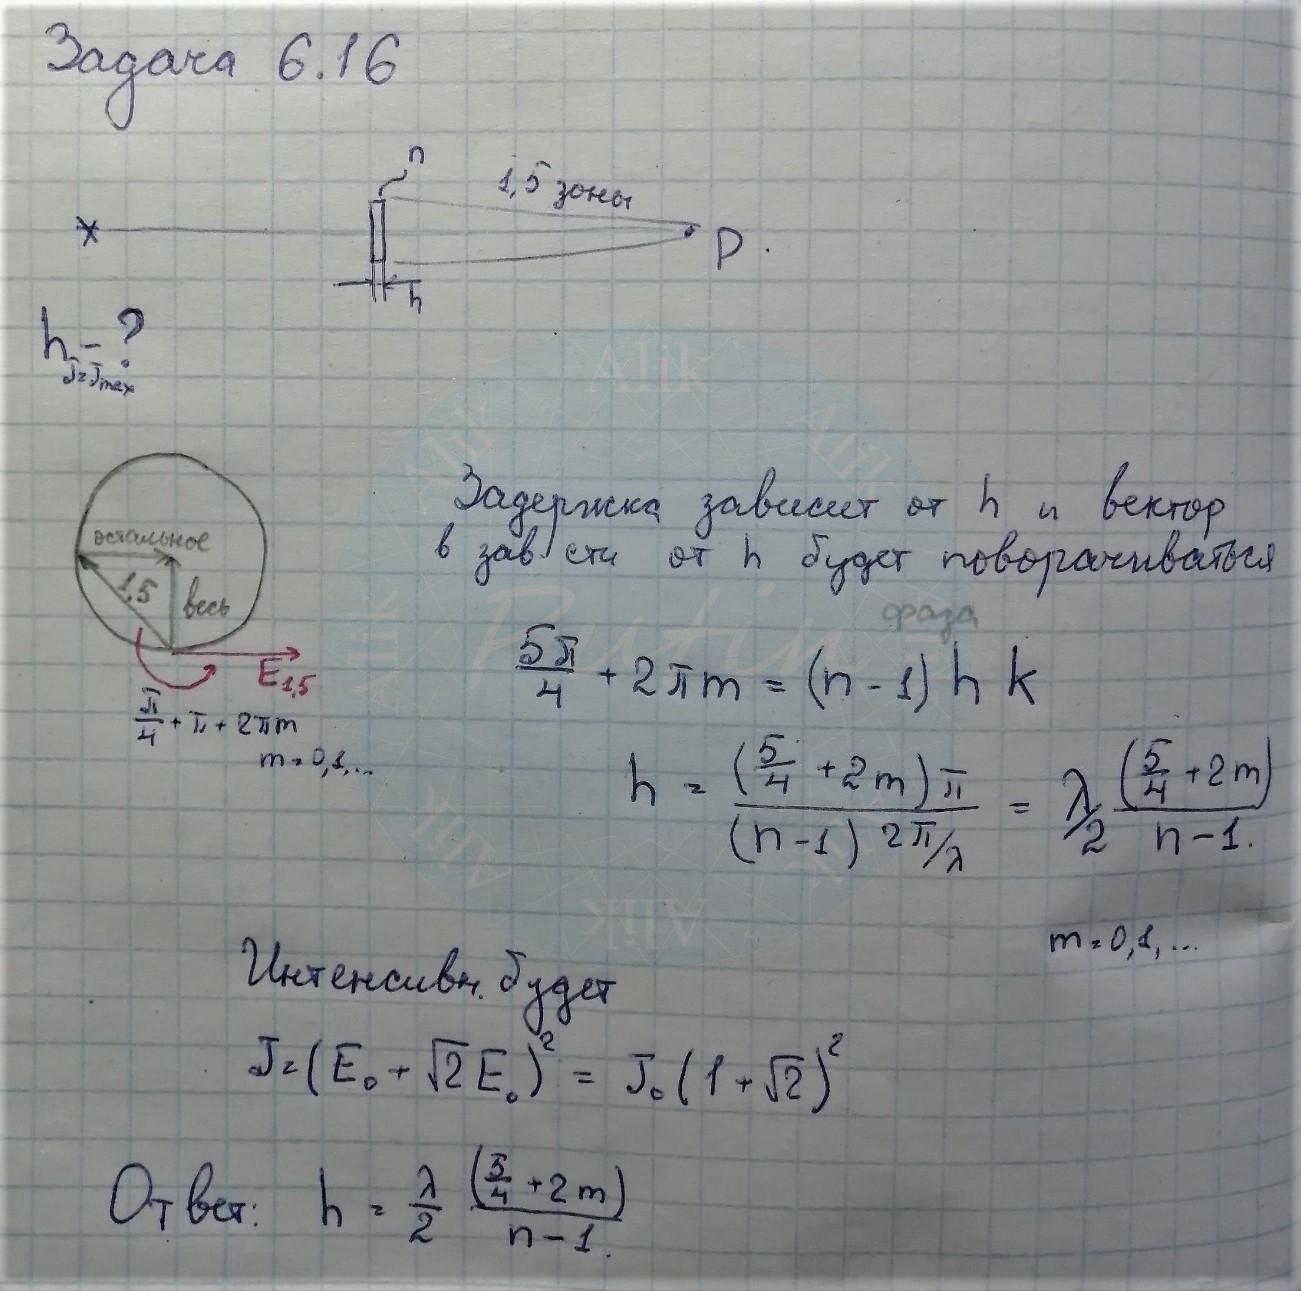 Задача 6.16
n
1,5 зоны
P.
h
h - ?
J=Jmax
остальное
1,5
весь
E₁,₅
π/4 + π + 2πm
m=0,1,...
Задержка зависит от h и вектор
в зав сти от h будет поворачиваться
фаза
5π/4 + 2πm = (n-1) h k
h = (5/4 + 2m)π / (n-1) 2π/λ = λ/2 (5/4 + 2m) / n-1.
m=0,1,...
Интенсивн. будет
J=(E₀ + √2 E₀)² = J₀(1+√2)²
Ответ: h = λ/2 (5/4 + 2m) / n-1.
Alik
Alik
Alik
Alik
Alik
Alik
Alik
Alik
Putin